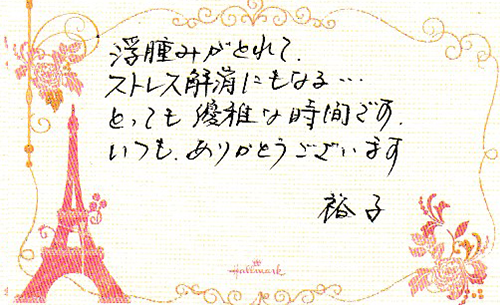 浮腫みがとれて.
ストレス解消にもなる…
とっても優雅な時間です.
いつも、ありがとうございます
裕子
Hallmark